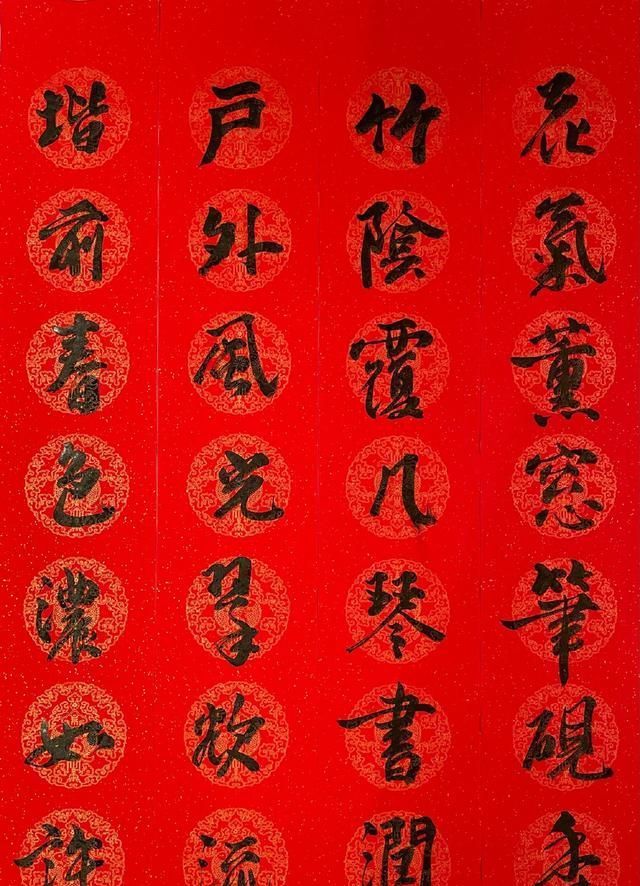 花氣薰窓筆硯香
竹陰覆几琴書潤
戶外風光翠欲流
堦前春色濃如許